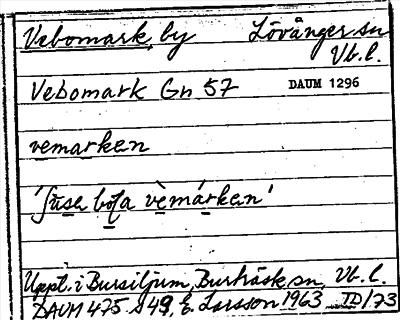 Vebomark, by Lövånger sn
Vb.l.
Vebomark Gn 57 DAUM 1296
vemarken
bófa vèmárken'
Uppt. i Bursiljum, Burträsk sn, Vb.l.
DAUM 475 s 49, E. Larsson 1963 ID/73